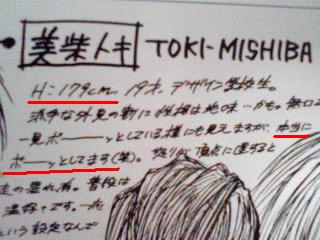 美柴トキ TOKI-MISHIBA
H:179cm 19才。デザイン学校生。
派手な外見の割に性格は地味…かも。無口
一見ボーーッとしている様にも見えますが、本当に
ボーーッとしてます(笑)。怒りが頂点に達すると
の暴れ有。普段は
温和です。一応
という設定なんで